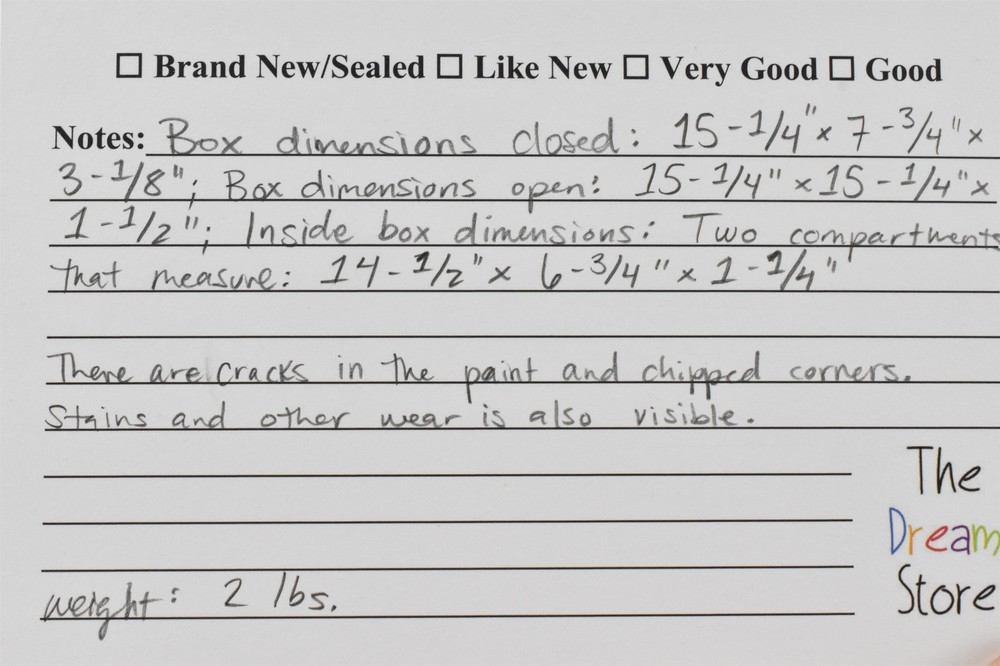 ☐ Brand New/Sealed ☐ Like New ☐ Very Good ☐ Good
Notes: Box dimensions closed: 15-1/4" x 7-3/4" x
3-1/8"; Box dimensions open: 15-1/4" x 15-1/4" x
1-1/2"; Inside box dimensions: Two compartments
that measure: 14-1/2" x 6-3/4" x 1-1/4"
There are cracks in the paint and chipped corners.
Stains and other wear is also visible.
The
Dream
Store
weight: 2 lbs.